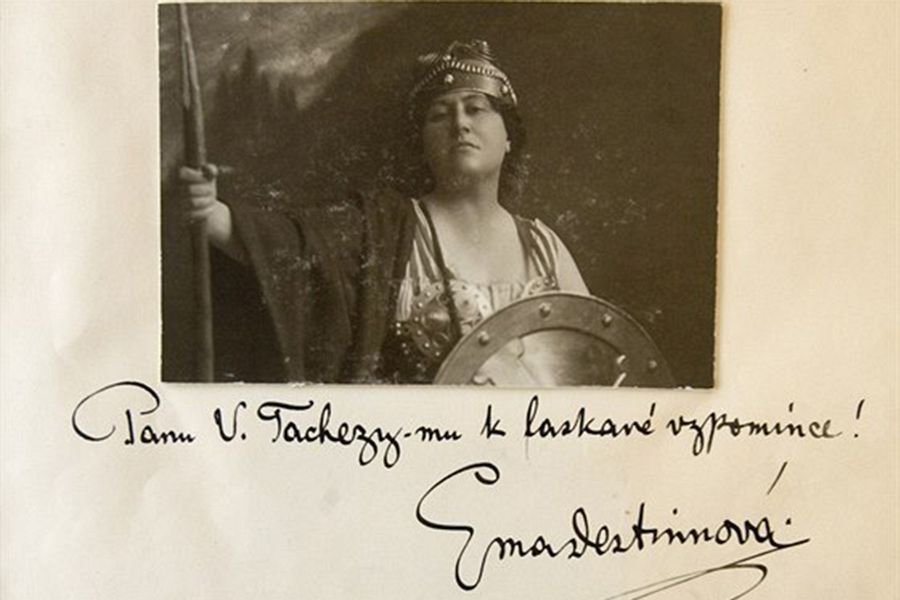 Panu V. Tachezy-mu k laskavé vzpomínce!
Ema Destinnová